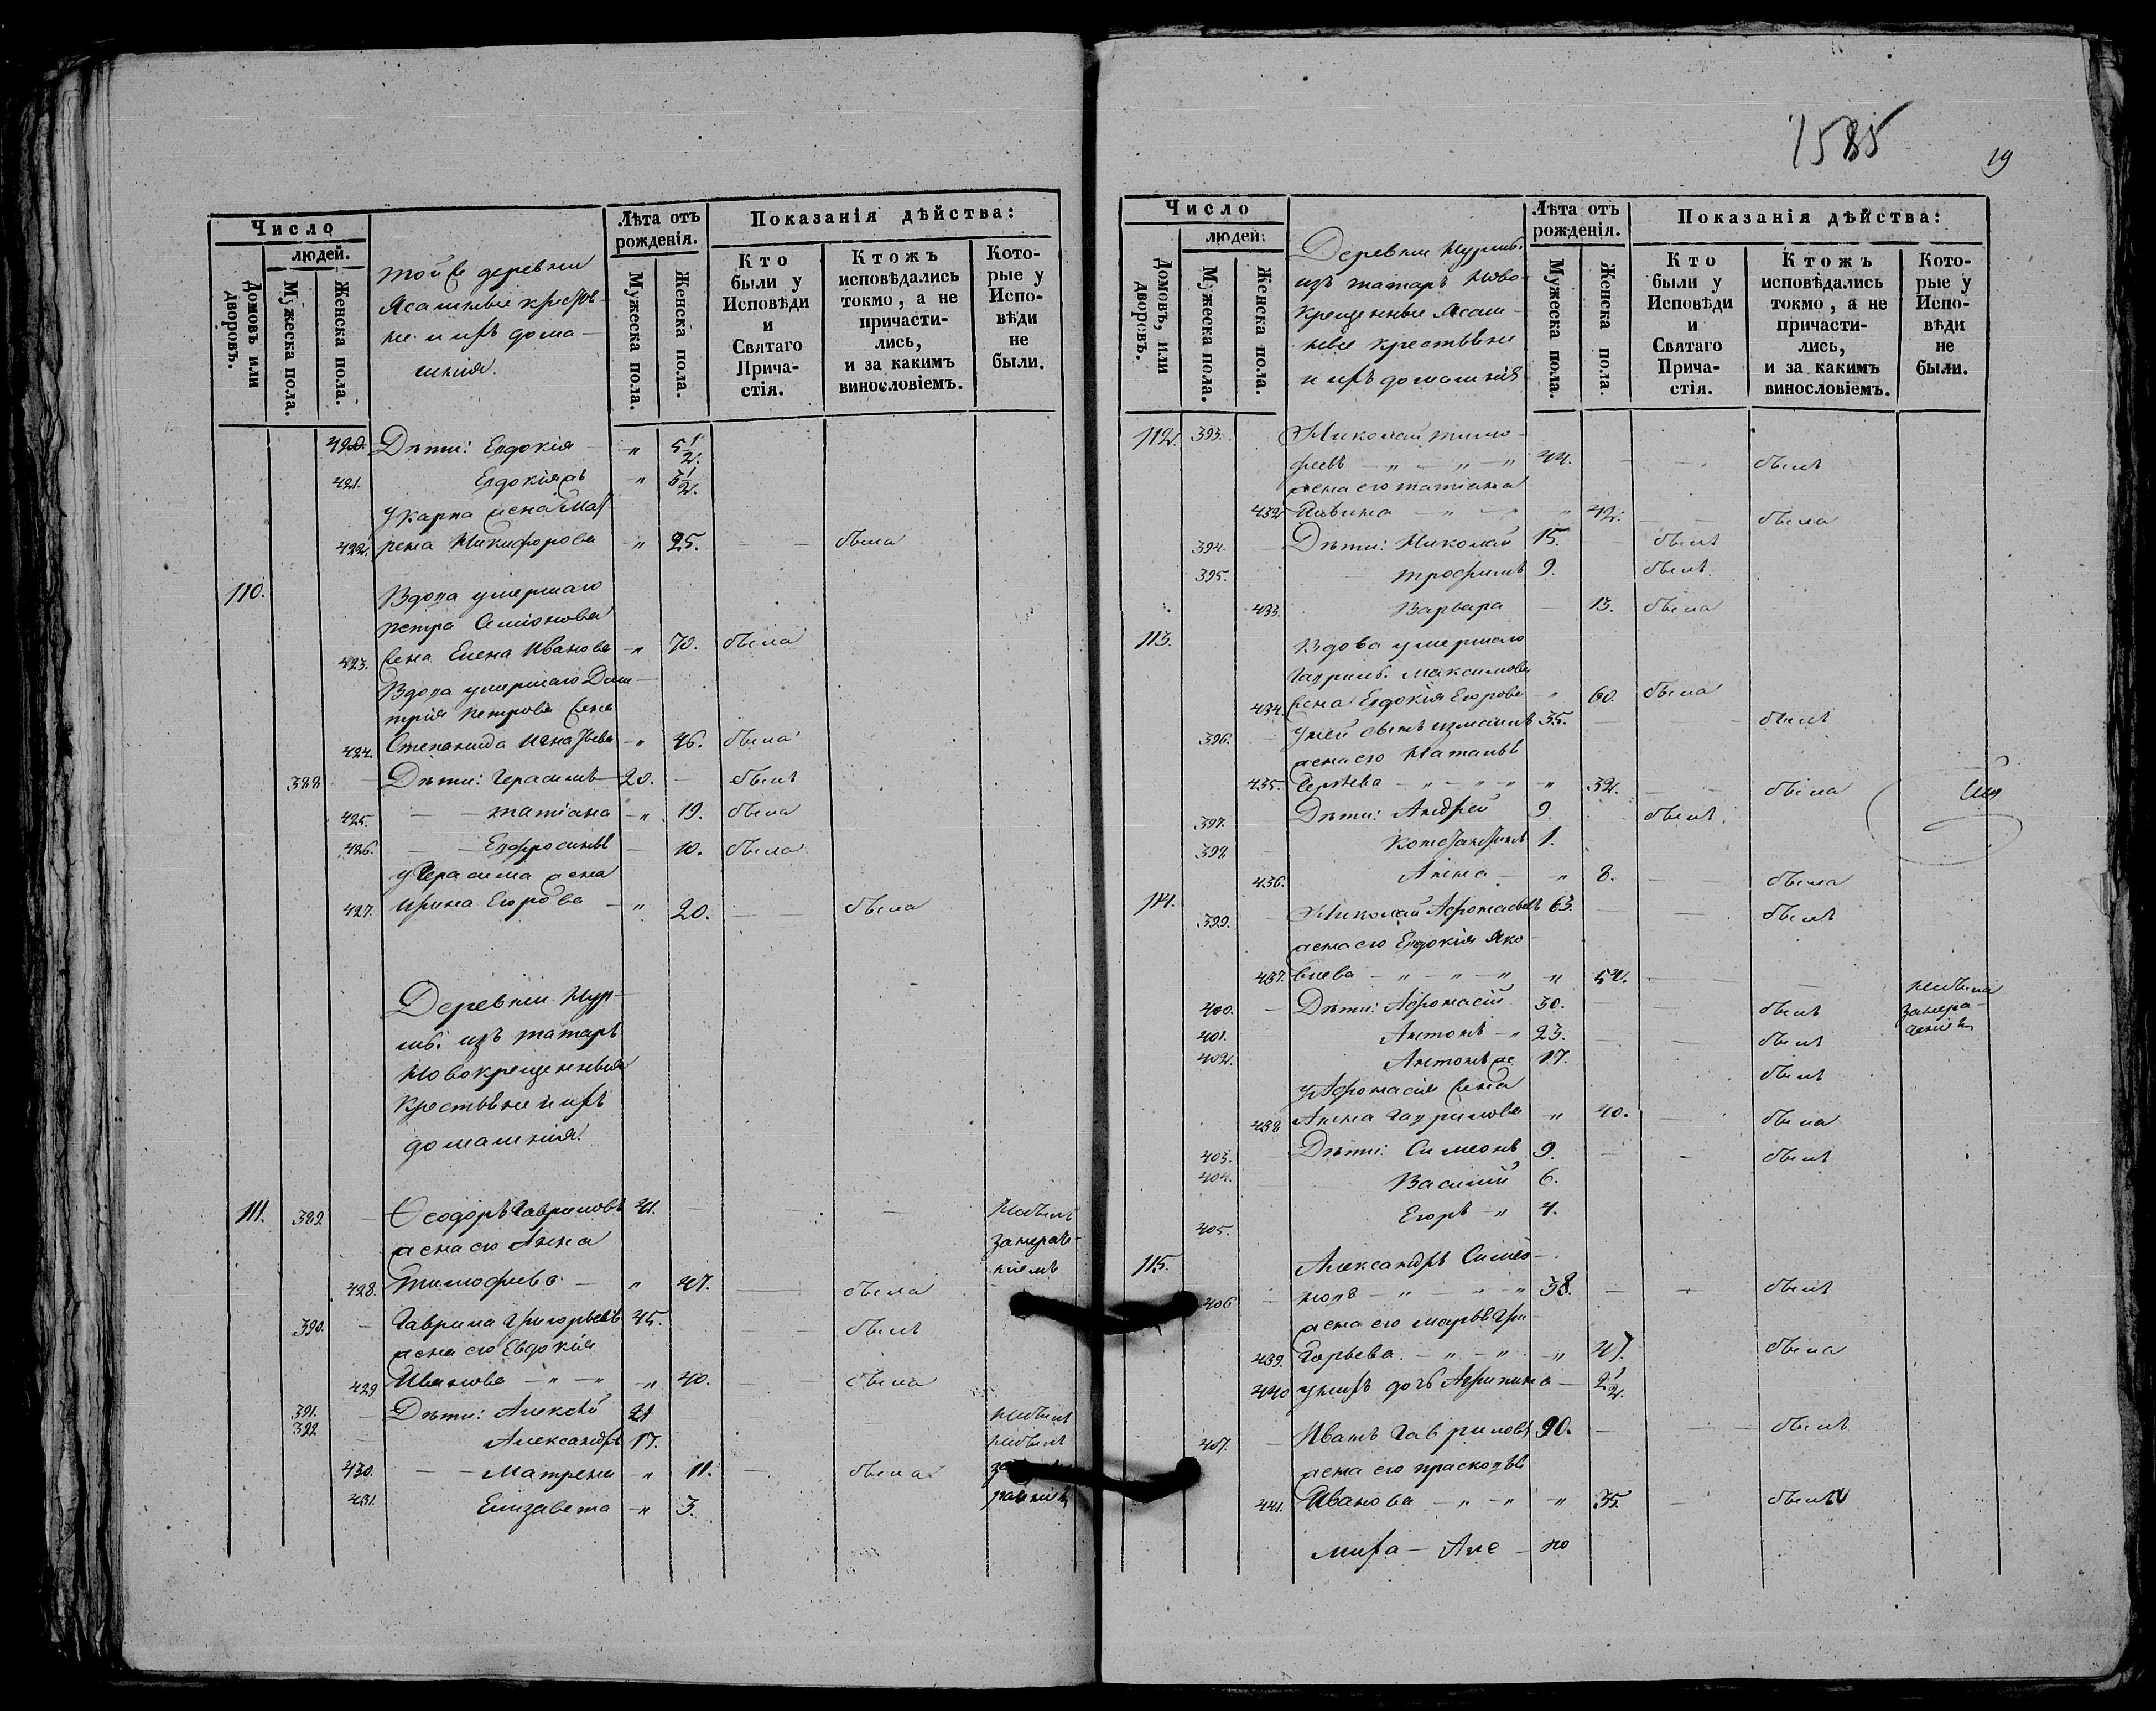 1585
19
Число
людей.
Домовъ или дворовъ.
Мужеска пола.
Женска пола.
той же деревни
Ясашные крестья-
не и ихъ дома-
шнія.
Лѣта отъ рожденія.
Мужеска пола.
Женска пола.
Показанія дѣйства:
Кто были у Исповѣди и Святаго Причастія.
Ктожъ исповѣдались токмо, а не причастились, и за какимъ винословіемъ.
Которые у Исповѣди не были.
420. Дѣти: Евдокія — „ 5 1/2.
421. Евдокія жъ „ 3 1/2.
у Карпа жена Мат
422. рена Никифорова — „ 25. — — была
110. Вдова умершаго
Петра Симіонова
423. жена Елена Иванова — „ 70. была
Вдова умершаго Дми-
трія Петрова жена
424. Степанида Игнатьева — „ 46. была
388 — Дѣти: Герасимъ — 20. — былъ
425. — — Татіана — „ 19. была
426. — — Евфросинья — 10. была
у Герасима жена
427. Ирина Егорова — „ 20. — была
Деревни Нур-
мб. изъ татаръ
Новокрещенныя
Крестьяне и ихъ
домашнія.
111. 389. — Ѳеодоръ Гавриловъ 41. — — небылъ
жена его Анна занерад-
428. Тимофѣева — „ 47. — была ніемъ
390. — Гаврила Григорьевъ 45. — былъ
жена его Евдокія
429 Иванова — „ — „ — „ 40. — — была
391. — Дѣти: Алексѣй 21 — небылъ
392 Александръ 17. небылъ
430. — — Матрена — „ 11. — была
431. Елизавета — „ 3.
Число
людей:
Домовъ, или дворовъ.
Мужеска пола.
Женска пола.
Деревни Нурмб.
изъ татаръ Ново-
крещенные Ясаш-
ные крестьяне
и ихъ домашнія
Лѣта отъ рожденія.
Мужеска пола.
Женска пола.
Показанія дѣйства:
Кто были у Исповѣди и Святаго Причастія.
Ктожъ исповѣдались токмо, а не причастились, и за какимъ винословіемъ.
Которые у Исповѣди не были.
112. 393. Николай Тимо-
феевъ — „ — „ — „ 44. — — былъ
жена его Татіана
432 Савина — „ — „ 42. — — была
394. — Дѣти: Николай 15. — былъ
395. — Трофимъ 9. былъ.
433. Варвара — 13. была
113. Вдова умершаго
Гаврил. Максимова
434. жена Евдокія Егорова — „ 60. была
396. — у ней сынъ Измаилъ 35. — — былъ
жена его Наталья
435. Сергѣева — „ — „ — „ „ 32. — — была
397. — Дѣти: Андрей 9 былъ.
398 Константинъ 1.
436. Анна — „ 8. — была
114. 399. Николай Афонасьевъ 63. — — былъ
жена его Евдокія Яко-
437. влева — „ — „ — „ „ 52. — — небыла
400. — Дѣти: Афонасій 30. — былъ
401. Антонъ — „ 23. — — былъ
402. Антонъ же 17. былъ
у Афонасія жена
438 Анна Гаврилова „ 40. — была
403. — Дѣти: Симеонъ 9. — — былъ
404. — Василій 6.
405. Егоръ — „ 4.
115. Александръ Симео-
406 — новъ — „ — „ — „ 38. — — былъ
жена его Марья Гри-
439. горьева. — „ — „ — „ 47. была
440 у нихъ дочь Агрипина — 2 1/2.
407. — Иванъ Гавриловъ 90. — — былъ
жена его Прасковья
441. Иванова — „ — „ „ 35. — была